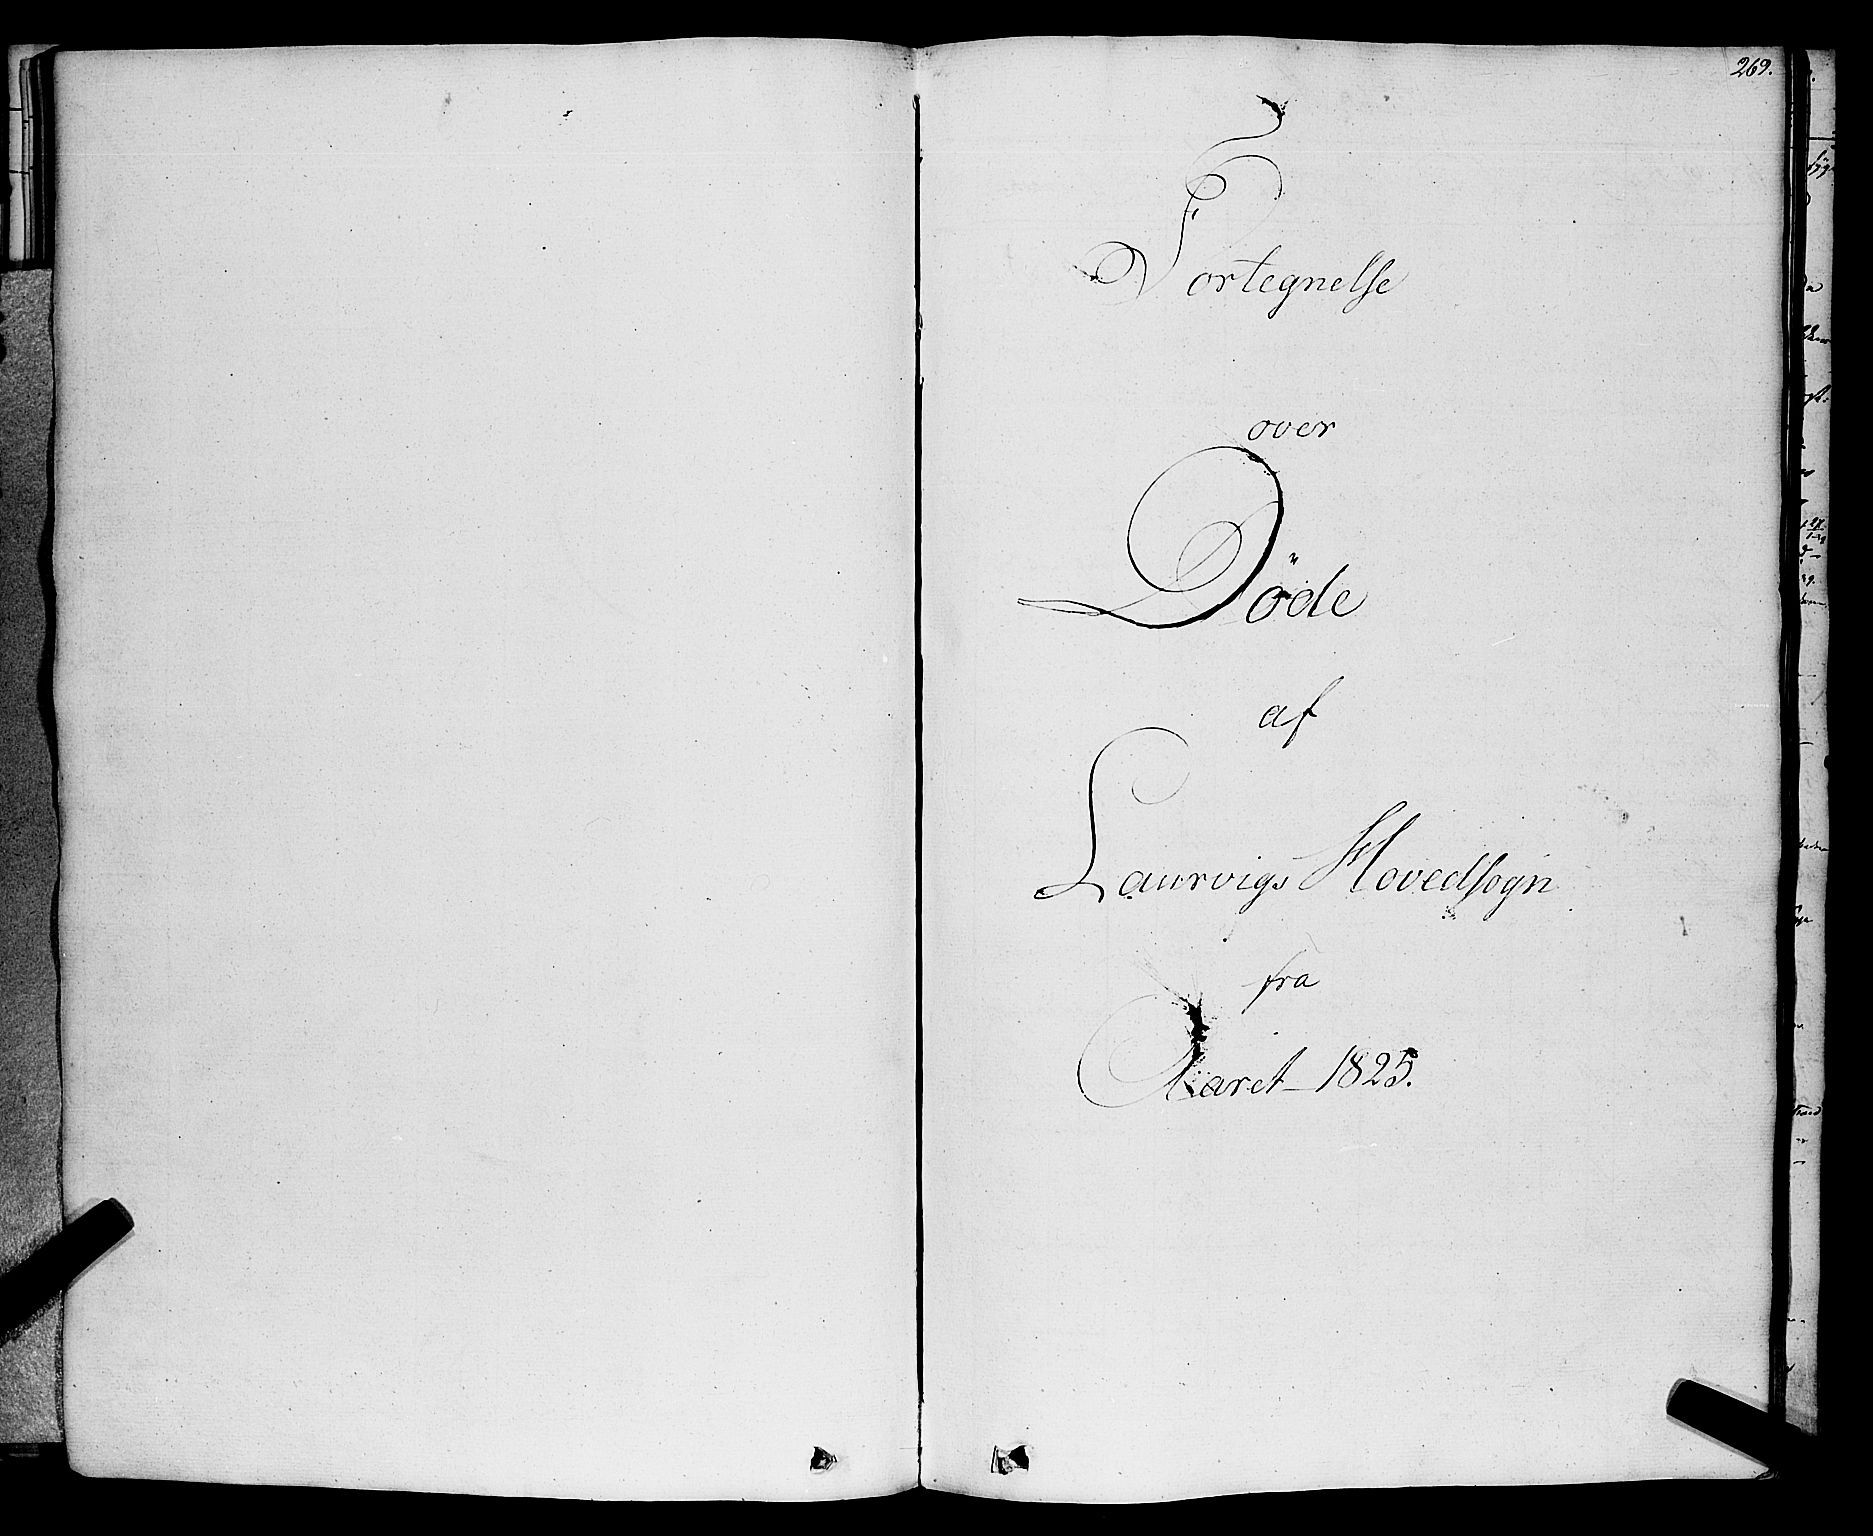 269.
Fortegnelse
over
Döde
af
Laurvigs Hovedsogn
fra
Aaret 1825.